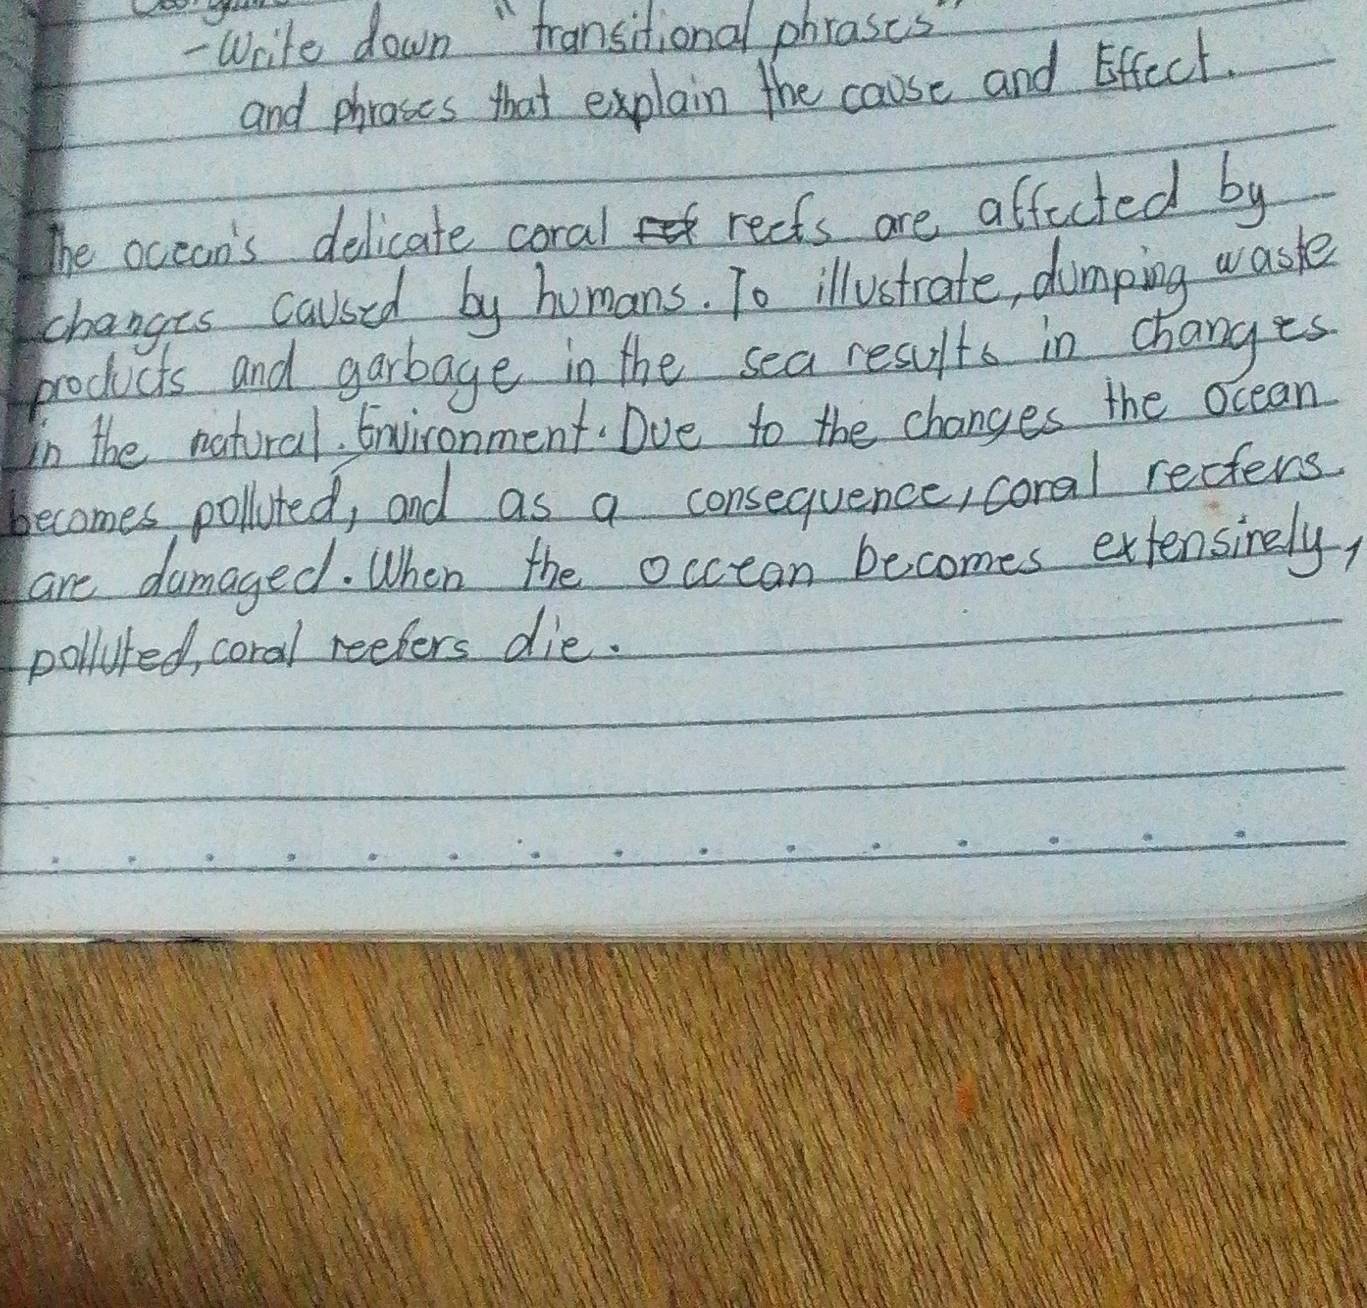 -Write down "transitional phrases"
and phrases that explain the cause and Effect.
The ocean's delicate coral reefs are affected by
changes caused by humans. To illustrate, dumping waste
products and garbage in the sea results in changes
in the natural. Environment. Due to the changes the ocean
becomes polluted, and as a consequence, coral reefers
are damaged. When the occean becomes extensinely,
polluted, coral reefers die.